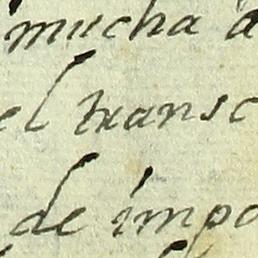 mucha a
el transc
de impo